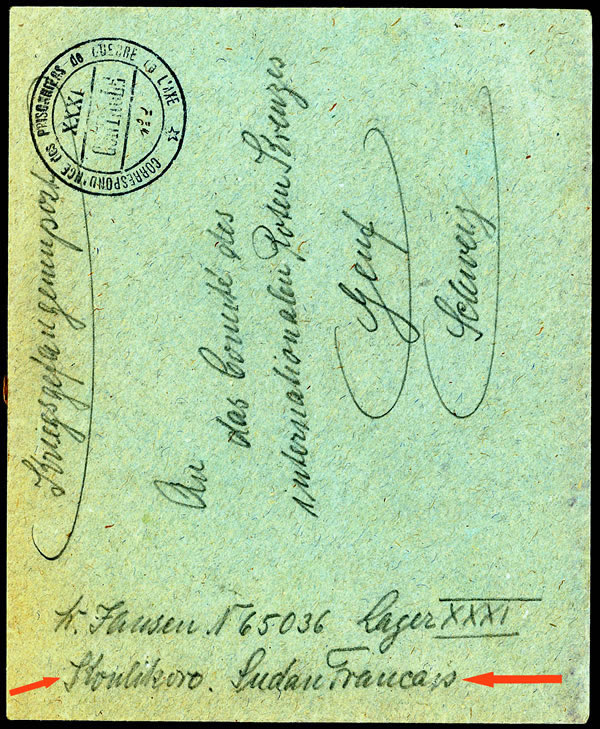 CORRESPOND'NCE des PRISONNIERS de GUERRE de L'AXE
XXXI
CONTROLE
Kriegsgefangenenpost
An
das Comité des
internationalen Roten Kreuzes
Genf
Schweiz
Hansen N 65036 Lager XXXI
Koulikoro. Sudan Francais